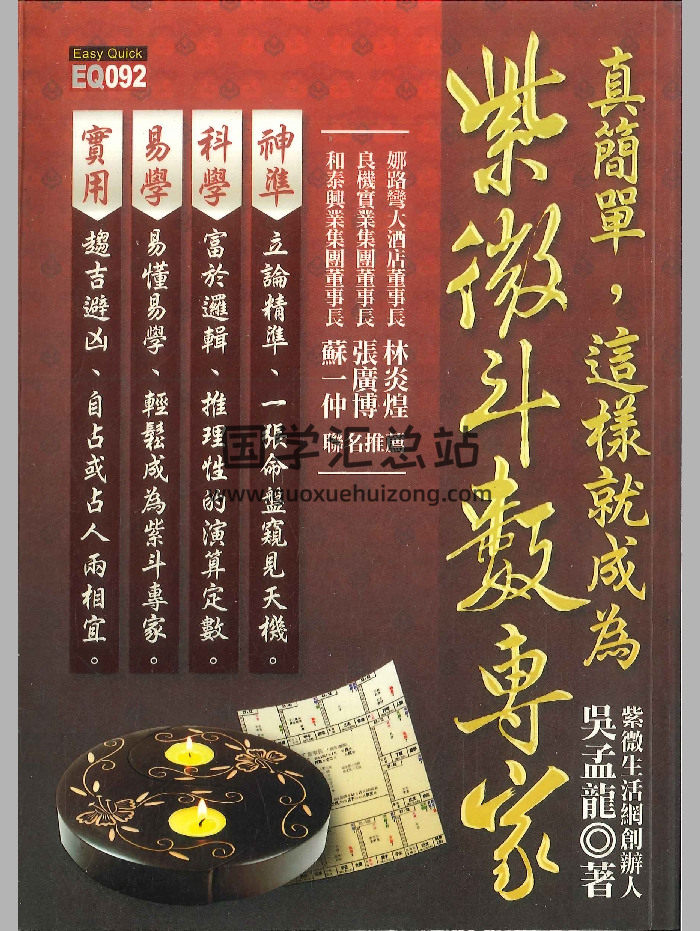 Easy Quick
EQ092
真簡單，這樣就成為
紫微斗數專家
紫微生活網創辦人
吳孟龍◎著
娜路彎大酒店董事長 林炎煌
良機實業集團董事長 張廣博
和泰興業集團董事長 蘇一仲
聯名推薦
神準
立論精準、一張命盤窺見天機。
科學
富於邏輯、推理性的演算定數。
易學
易懂易學、輕鬆成為紫斗專家。
實用
趨吉避凶、自占或占人兩相宜。
国学汇总站
www.guoxuehuizong.com